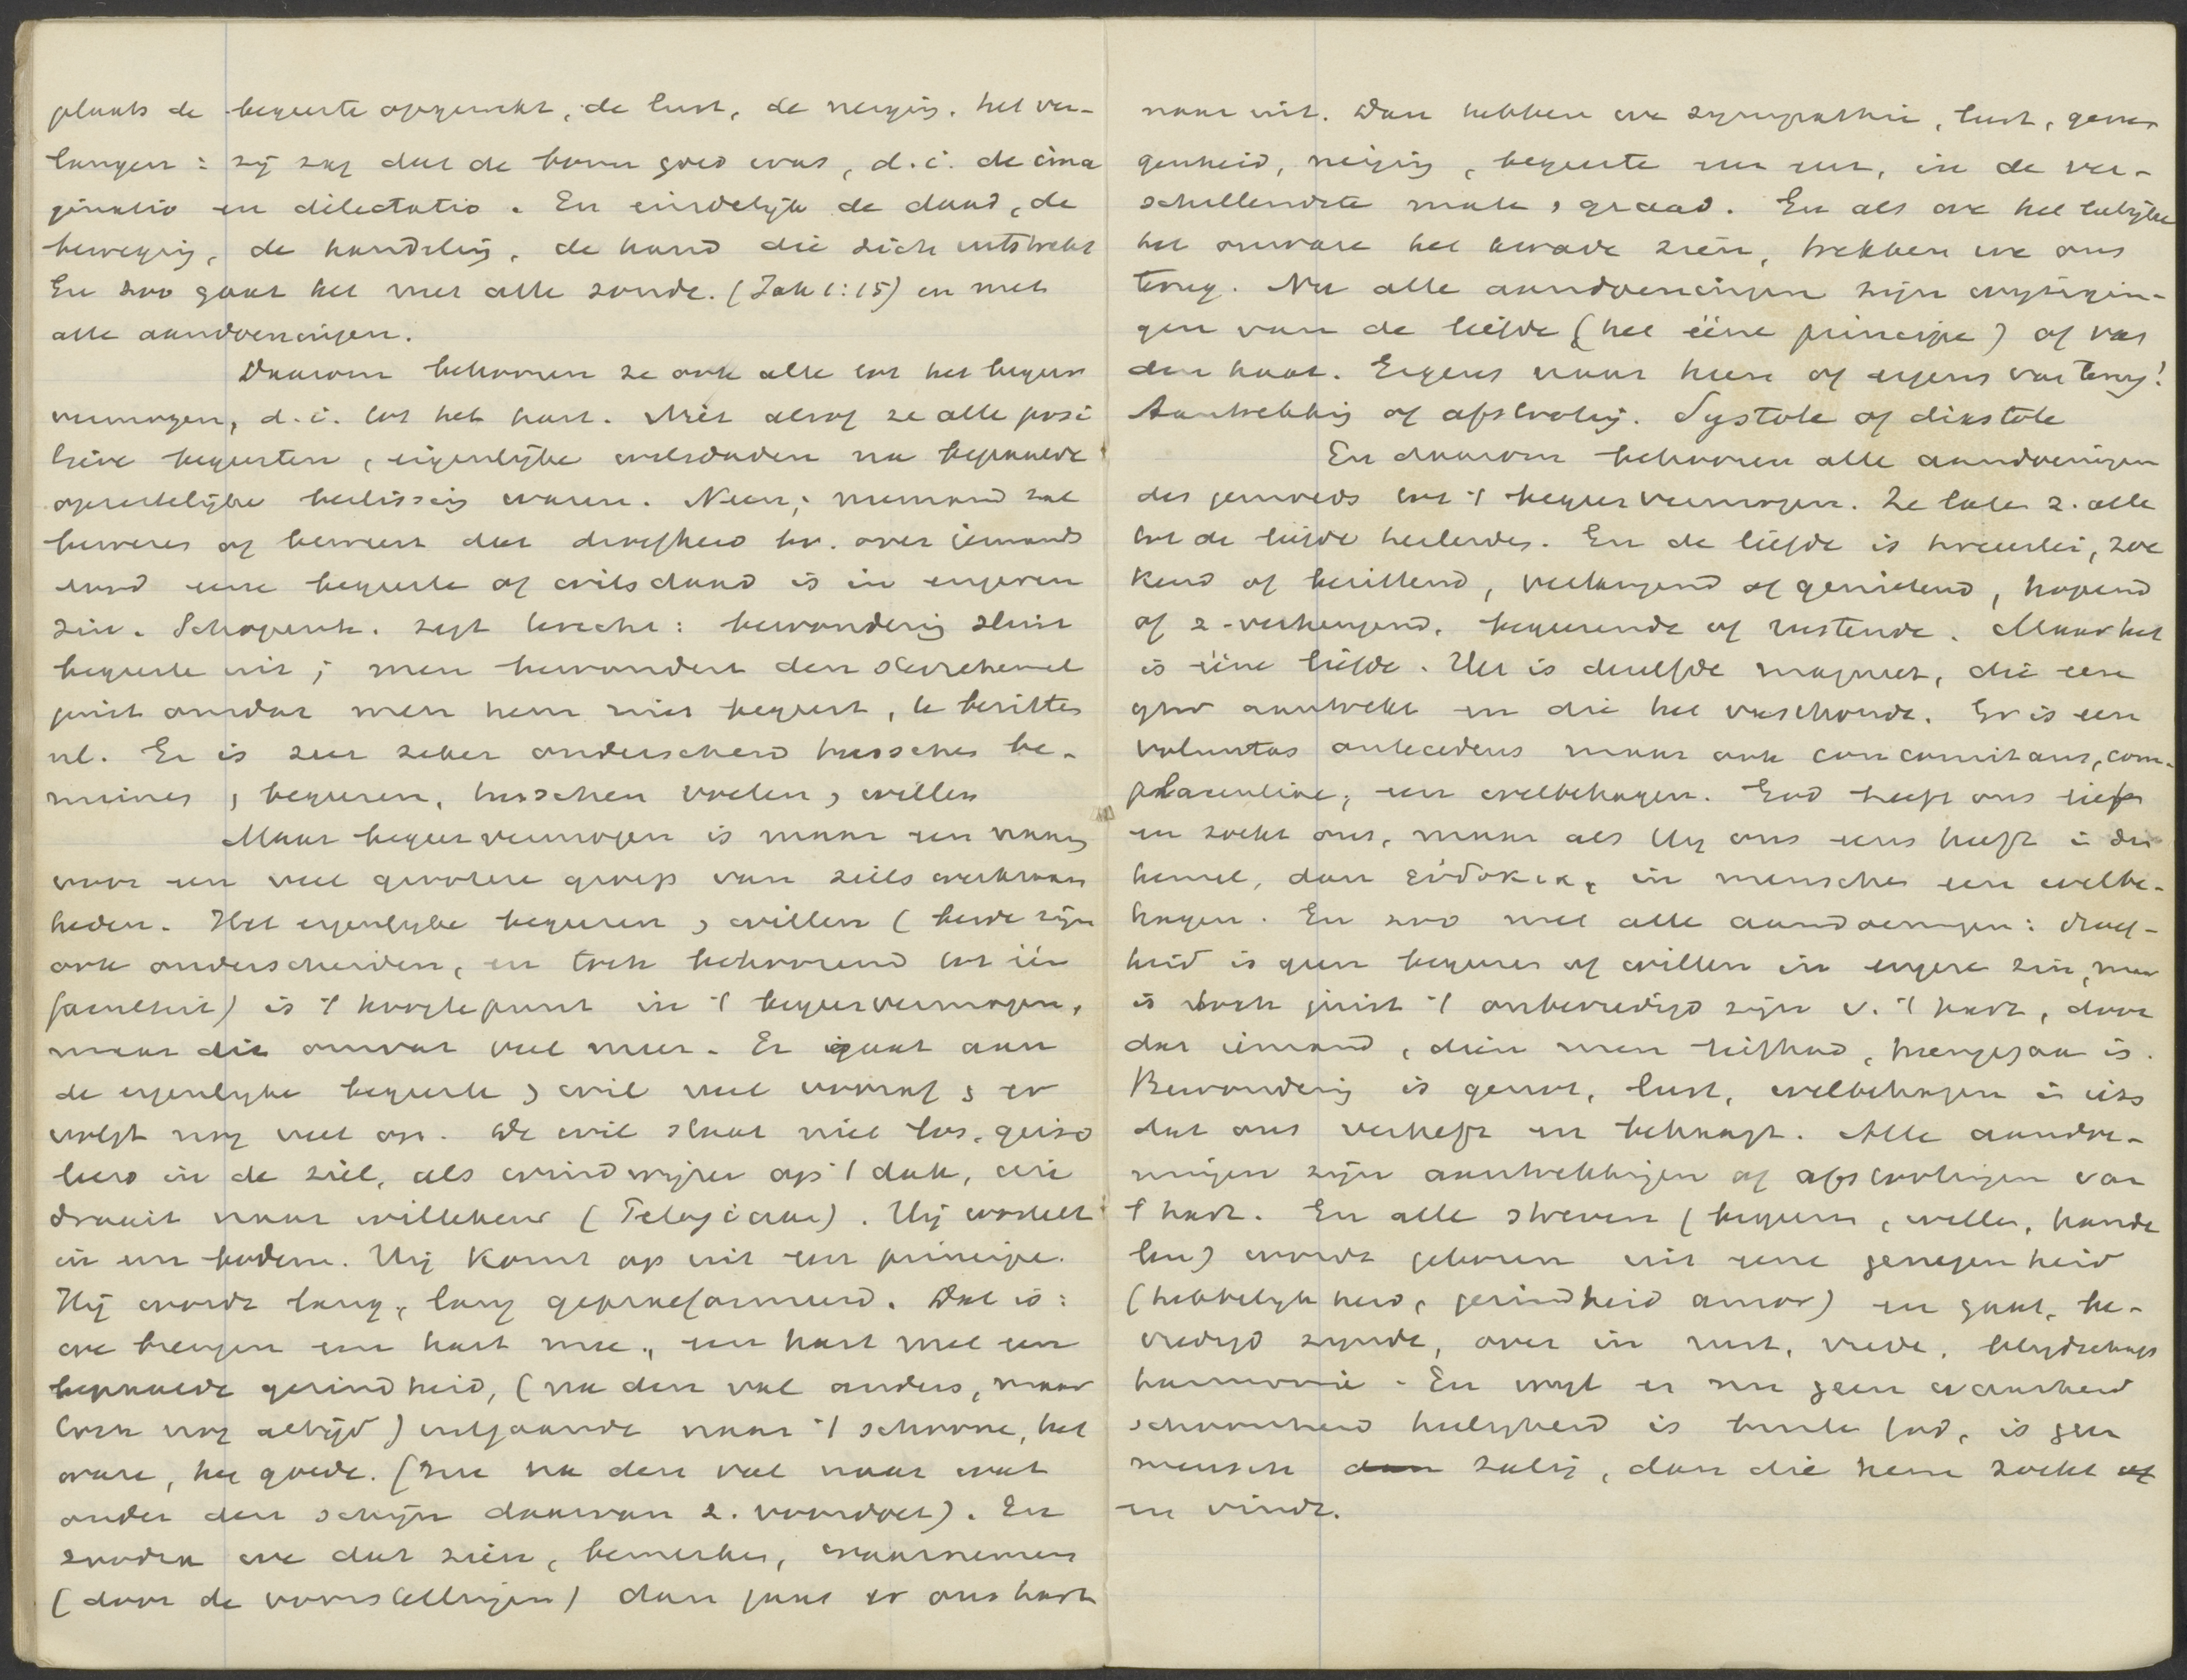 plaats de begeerte opgewekt, de lust, de neiging, het ver-
langen: zij zag dat de boom goed was, d.i. de ima
ginatio en dilectatio. En eindelijk de daad, de
beweging, de handeling, de hand die zich uitstrekt
En zoo gaat het met alle zonde. (Jak 1:15) en met
alle aandoeningen.
Daarom behooren ze ook alle tot het begeer
vermogen, d.i. tot het hart. Niet alsof ze alle posi
tieve begeerten, eigenlijke wilsdaden na bepaalde
opzettelijke beslissing waren. Neen; niemand zal
beweren of beweert dat droefheid bv. over iemands
dood eene begeerte of wilsdaad is in engeren
zin. Schopenh. zegt terecht: bewondering sluit
begeerte uit; men bewondert den sterrehemel
juist omdat men hem niet begeert, te bezitten
nl. Er is zeer zeker onderscheid tusschen be-
minnen, begeeren, tusschen voelen, willen
Maar begeervermogen is maar een naam
voor een veel grootere groep van zielswerkzaam
heden. Het eigenlijke begeeren, willen (beide zijn
ook onderscheiden, en toch behoorend tot één
faculteit) is 't hoogtepunt in 't begeervermogen,
maar dit omvat veel meer. Er gaat aan
de eigenlijke begeerte, wil veel vooraf, er
volgt nog veel op. De wil staat niet los, geiso
leerd in de ziel, als windwijzer op 't dak, die
draait naar willekeur (Pelagiaan). Hij wortelt
in een bodem. Hij komt op uit een principe.
Hij wordt lang, lang gepraeformeerd. Dat is:
we brengen een hart mee, een hart met een
bepaalde gezindheid, (na den val anders, maar
toch nog altijd) uitgaande naar 't schoone, het
ware, het goede. (Zie na den val naar wat
onder den schijn daarvan z. voordoet). En
zoodra we dat zien, bemerken, waarnemen
(door de voorstellingen) dan gaat er ons hart
naar uit. Dan hebben we sympathie, lust, gene
genheid, neiging, begeerte enz enz, in de ver-
schillendste mate, graad. En als we het leelijke
het onware het kwade zien, trekken we ons
terug. Nu alle aandoeningen zijn wijzigin-
gen van de liefde (het ééne principe) of van
den haat. Ergens naar heen of ergens van terug!
Aantrekking of afstooting. Systole of diastole
En daarom behooren alle aandoeningen
des gemoeds tot 't begeervermogen. Ze laten z. alle
tot de liefde herleiden. En de liefde is tweeërlei, zoe
kend of bezittend, verlangend of genietend, hopend
of z-verheugend, begeerende of rustende. Maar het
is ééne liefde. Het is dezelfde magneet, die een
ijzer aantrekt en die het vasthoudt. Er is een
voluntas antecedens maar ook concomitans, com-
placentiae, een welbehagen. God heeft ons lief
en zoekt ons, maar als Hij ons eens heeft in den
hemel, dan εὐδοκια, in menschen een welbe-
hagen. En zoo met alle aandoeningen: droef-
heid is geen begeeren of willen in engere zin, maar
is toch juist 't onbevredigd zijn v. 't hart, door
dat iemand, dien men liefhad, heengegaan is.
Bewondering is genot, lust, welbehagen in iets
dat ons verheft en behaagt. Alle aandoe-
ningen zijn aantrekkingen of afstootingen van
't hart. En alle streven (begeeren, willen, hande
len) wordt geboren uit eene genegenheid
(hebbelijkheid, gezindheid amor) en gaat, be-
vredigd zijnde, over in rust, vrede, blijdschap
harmonie. En wijl er nu geen waarheid
schoonheid heiligheid is buiten God, is geen
mensch dan zalig, dan die hem zoekt of
en vindt.